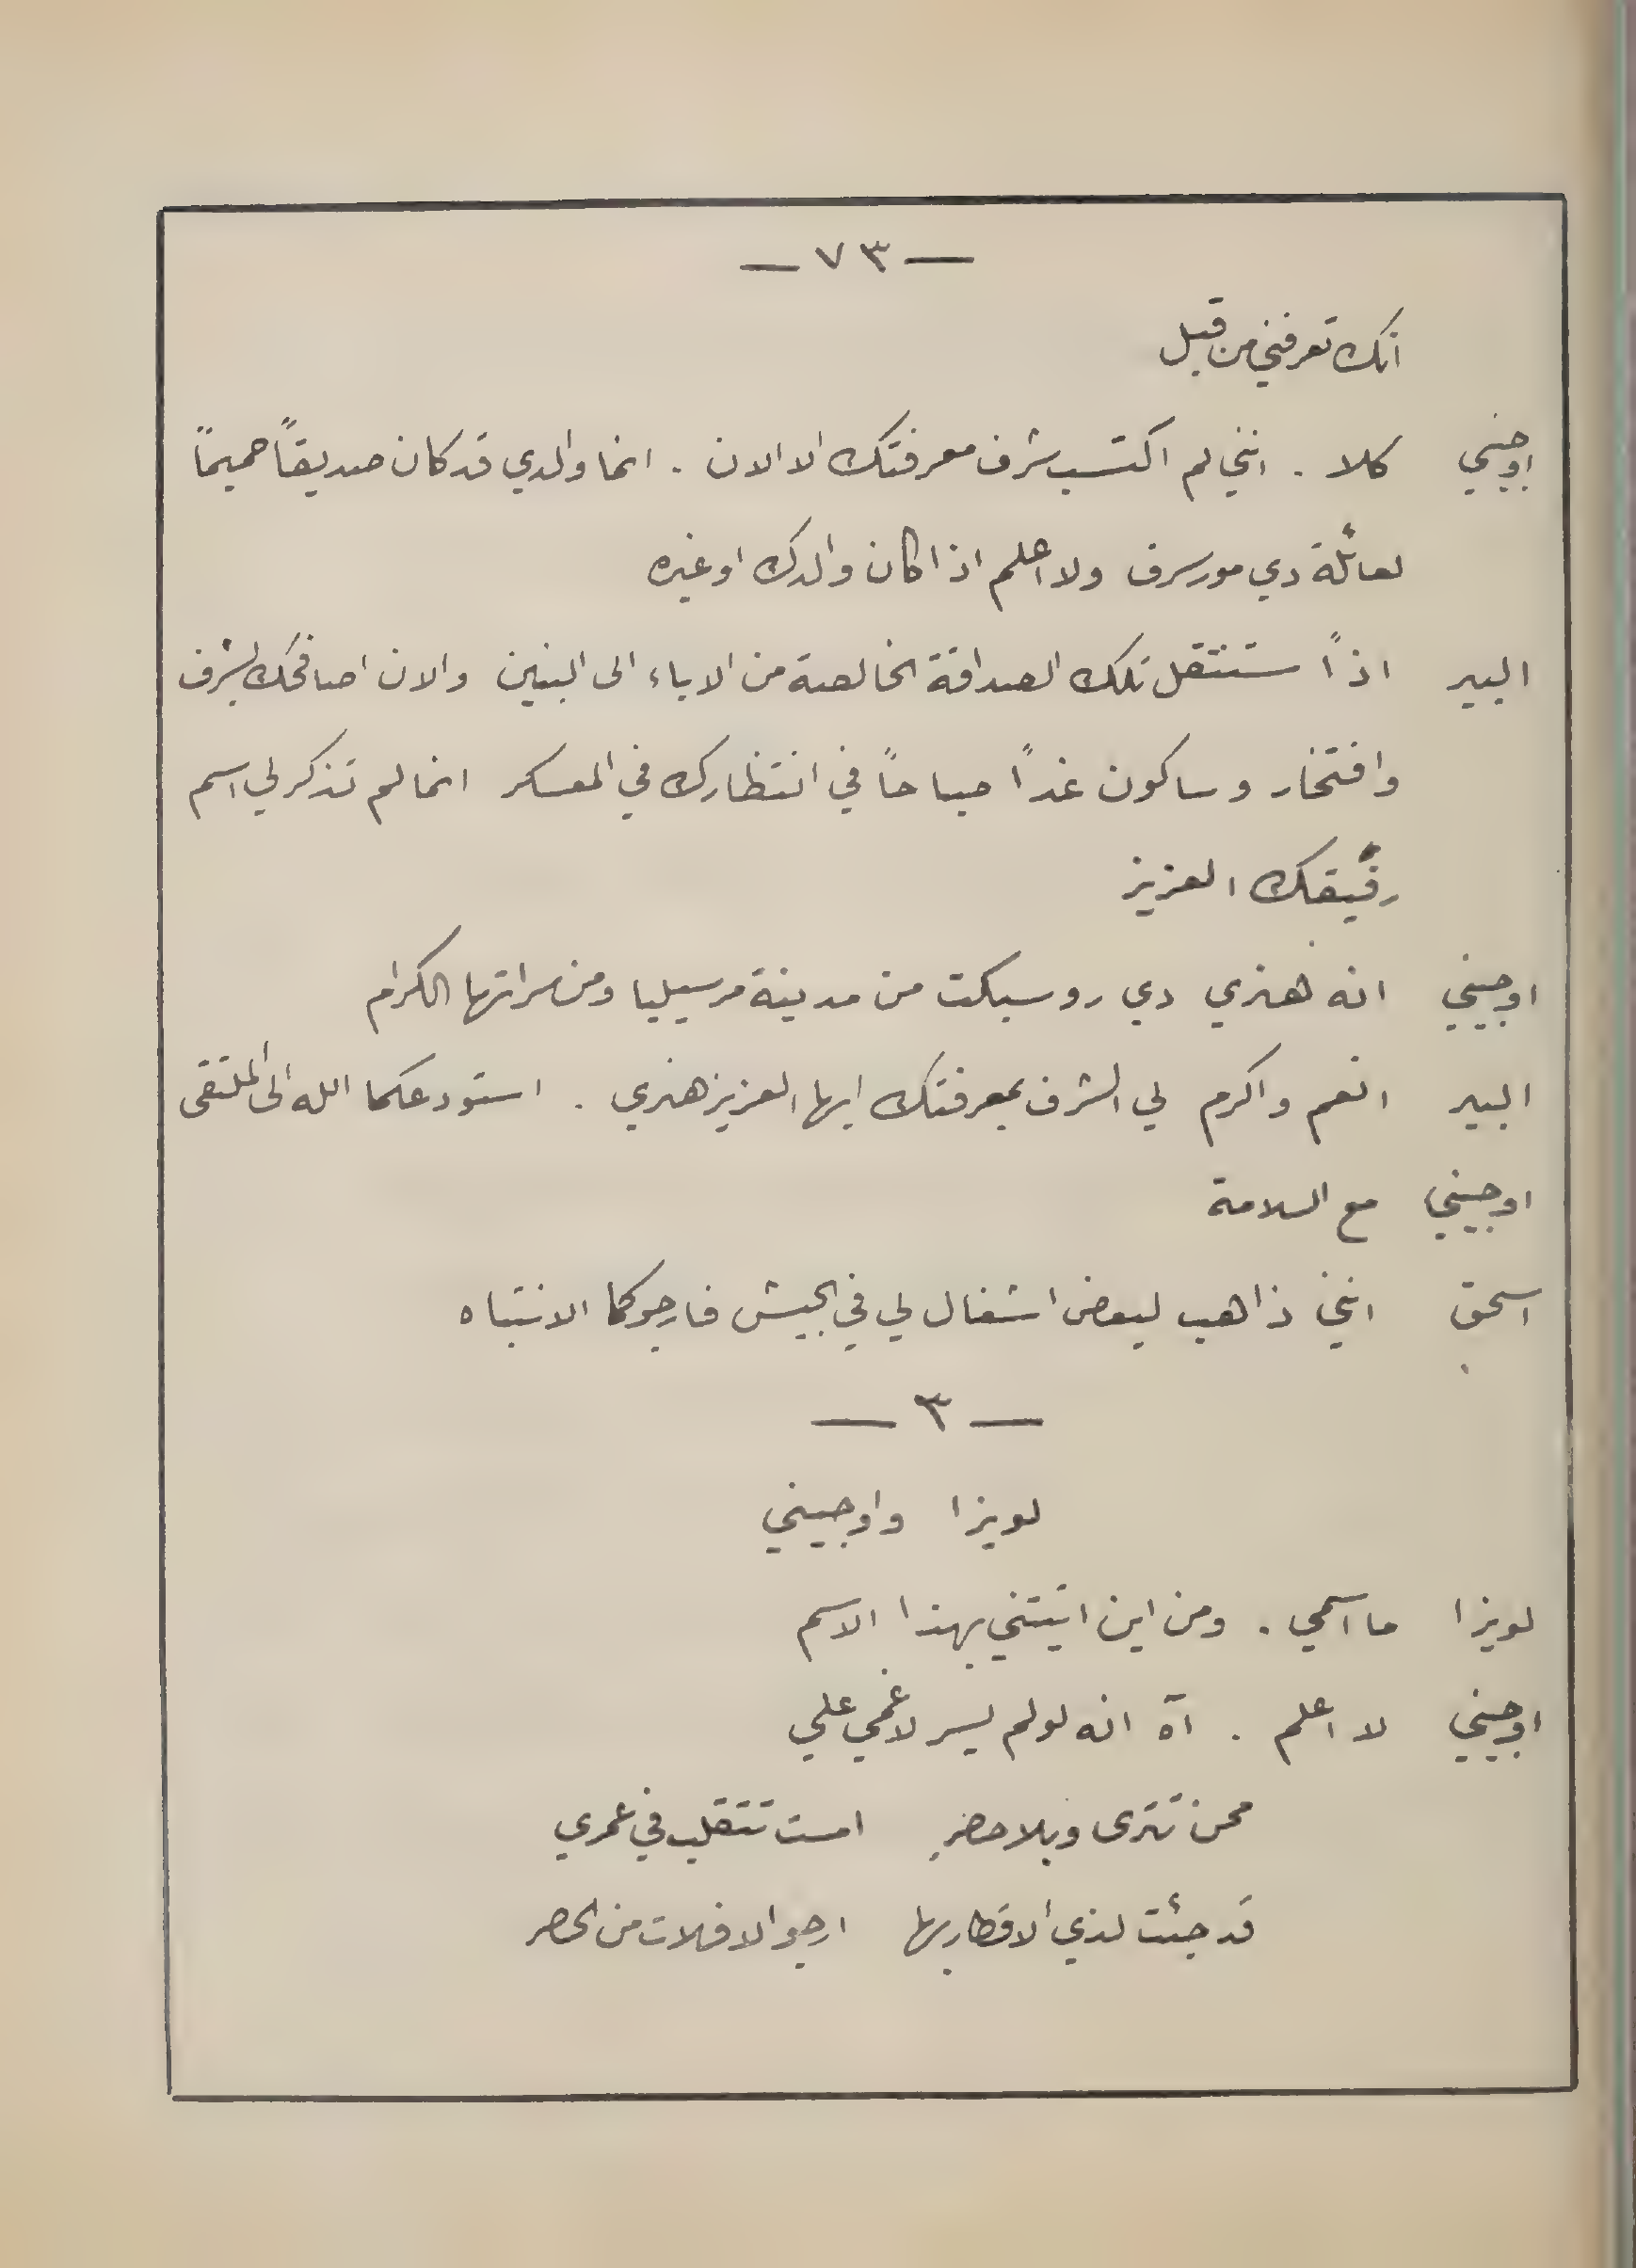 — ٧٣ —
انك تعرفني من قبل
اوجيني كلا . انني لم اكتسب شرف معرفتك الا الان . انما والدي قد كان صديقاً حميماً
لعائلة دي مورسرف ولا اعلم اذا كان والدك او غيره
البير اذاً ستنتقل تلك الصداقة الخالصة من الاباء الى البنين والان اصافحك بشرف
وافتخار وساكون غداً صباحاً في انتظارك في المعسكر انما لم تذكر لي اسم
رفيقك العزيز
اوجيني انه هنري دي روسبكت من مدينة مرسيليا ومن سراتها الكرام
البير انعم واكرم لي الشرف بمعرفتك ايها العزيز هنري . استودعكما الله الى الملتقى
اوجيني مع السلامة
اسحق انني ذاهب لبعض اشغال لي في الجيش فارجوكما الانتباه
— ٣ —
لويزا واوجيني
لويزا ما اسمي . ومن اين اتيتني بهذا الاسم
اوجيني لا اعلم . آه انه لو لم يسر لاغمي علي
محن تترى وبلا حضر امست تتقلب في عمري
قد جئت لذي الاقطار بها ارجو الافلات من الحصر